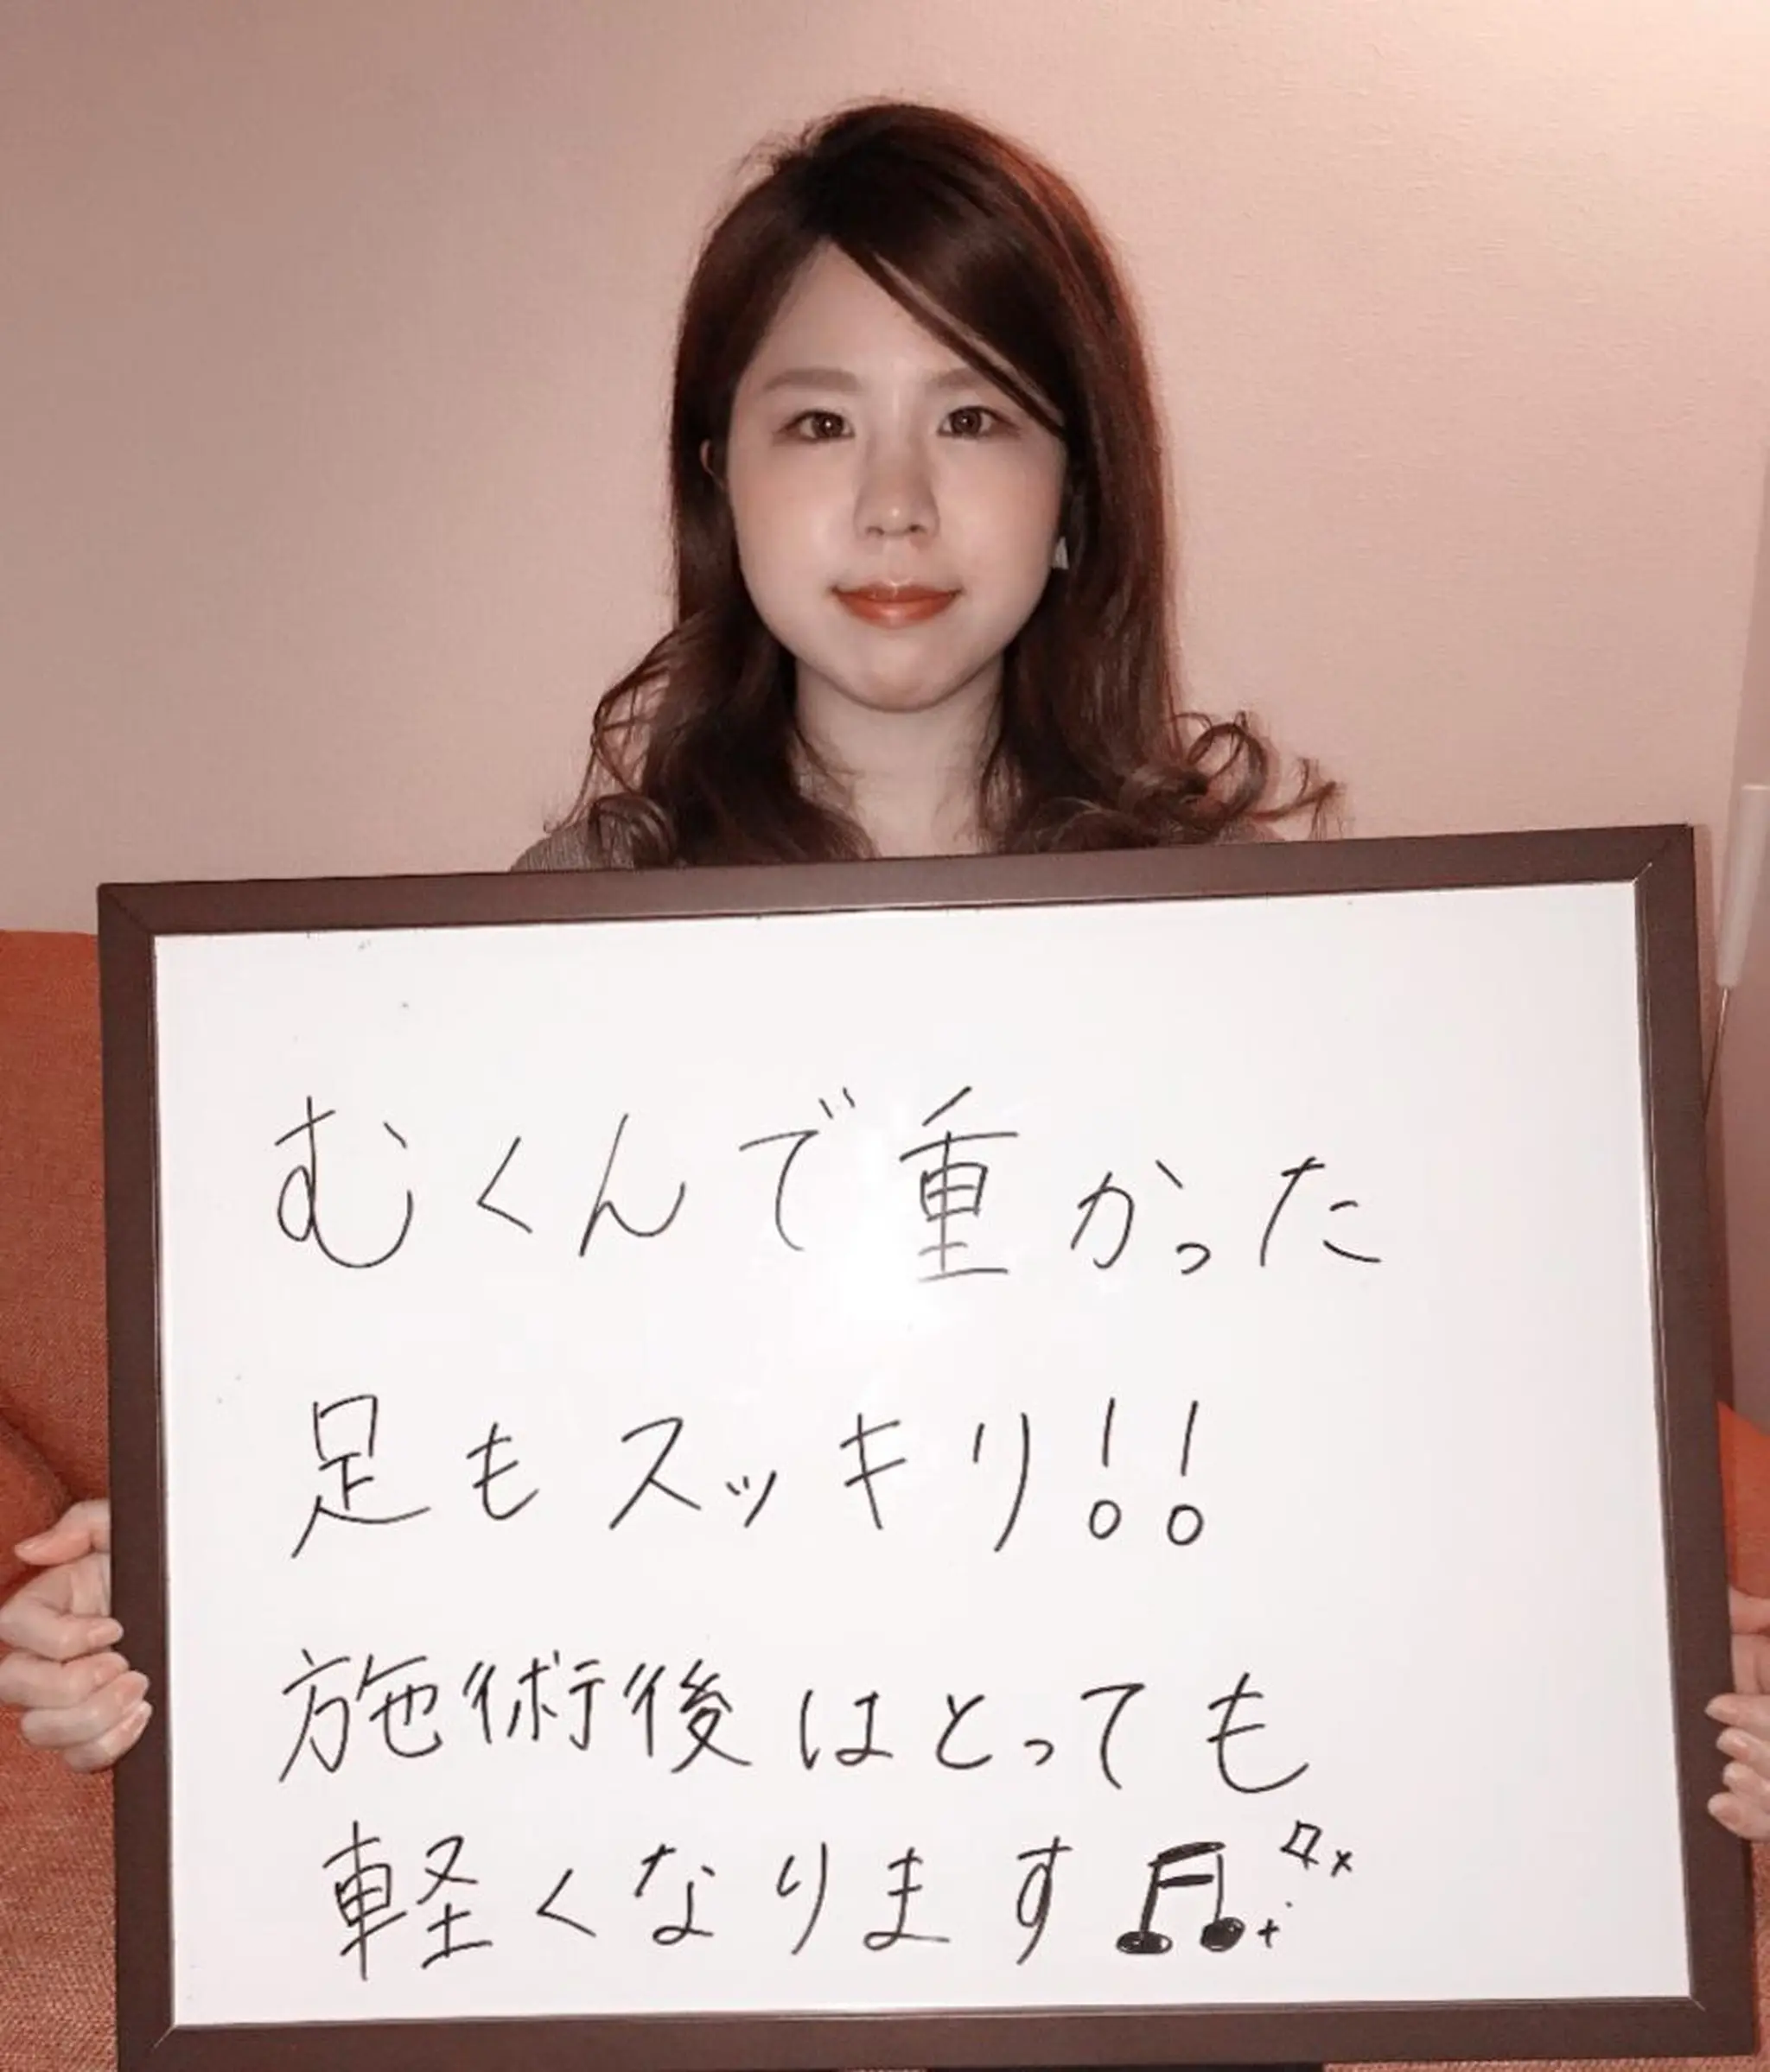 むくんで重かった
足もスッキリ!!
施術後はとっても
軽くなります♬